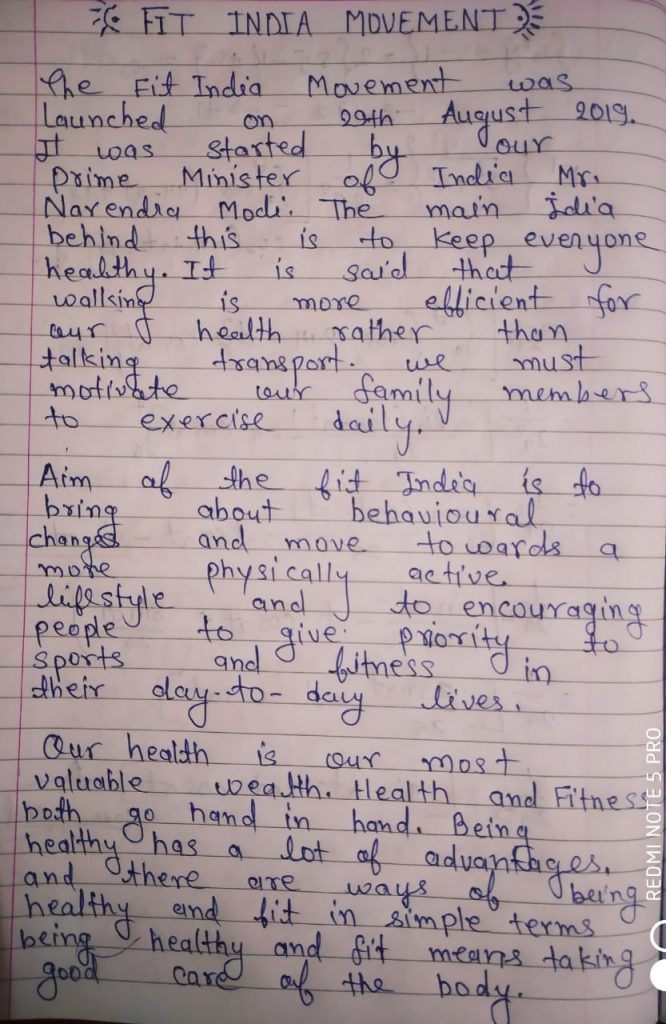 FIT INDIA MOVEMENT
The Fit India Movement was
Launched on 29th August 2019.
It was started by our
Prime Minister of India Mr.
Narendra Modi. The main idia
behind this is to keep everyone
healthy. It is said that
wallking is more efficient for
our health rather than
talking transport. we must
motivate our family members
to exercise daily.
Aim of the fit India is to
bring about behavioural
changes and move towards a
more physically active
lifestyle and to encouraging
people to give priority to
sports and fitness in
their day-to-day lives.
Our health is our most
valuable wealth. Health and Fitness
both go hand in hand. Being
healthy has a lot of advantages.
and there are ways of being
healthy and fit in simple terms
being healthy and fit means taking
good care of the body.
REDMI NOTE 5 PRO